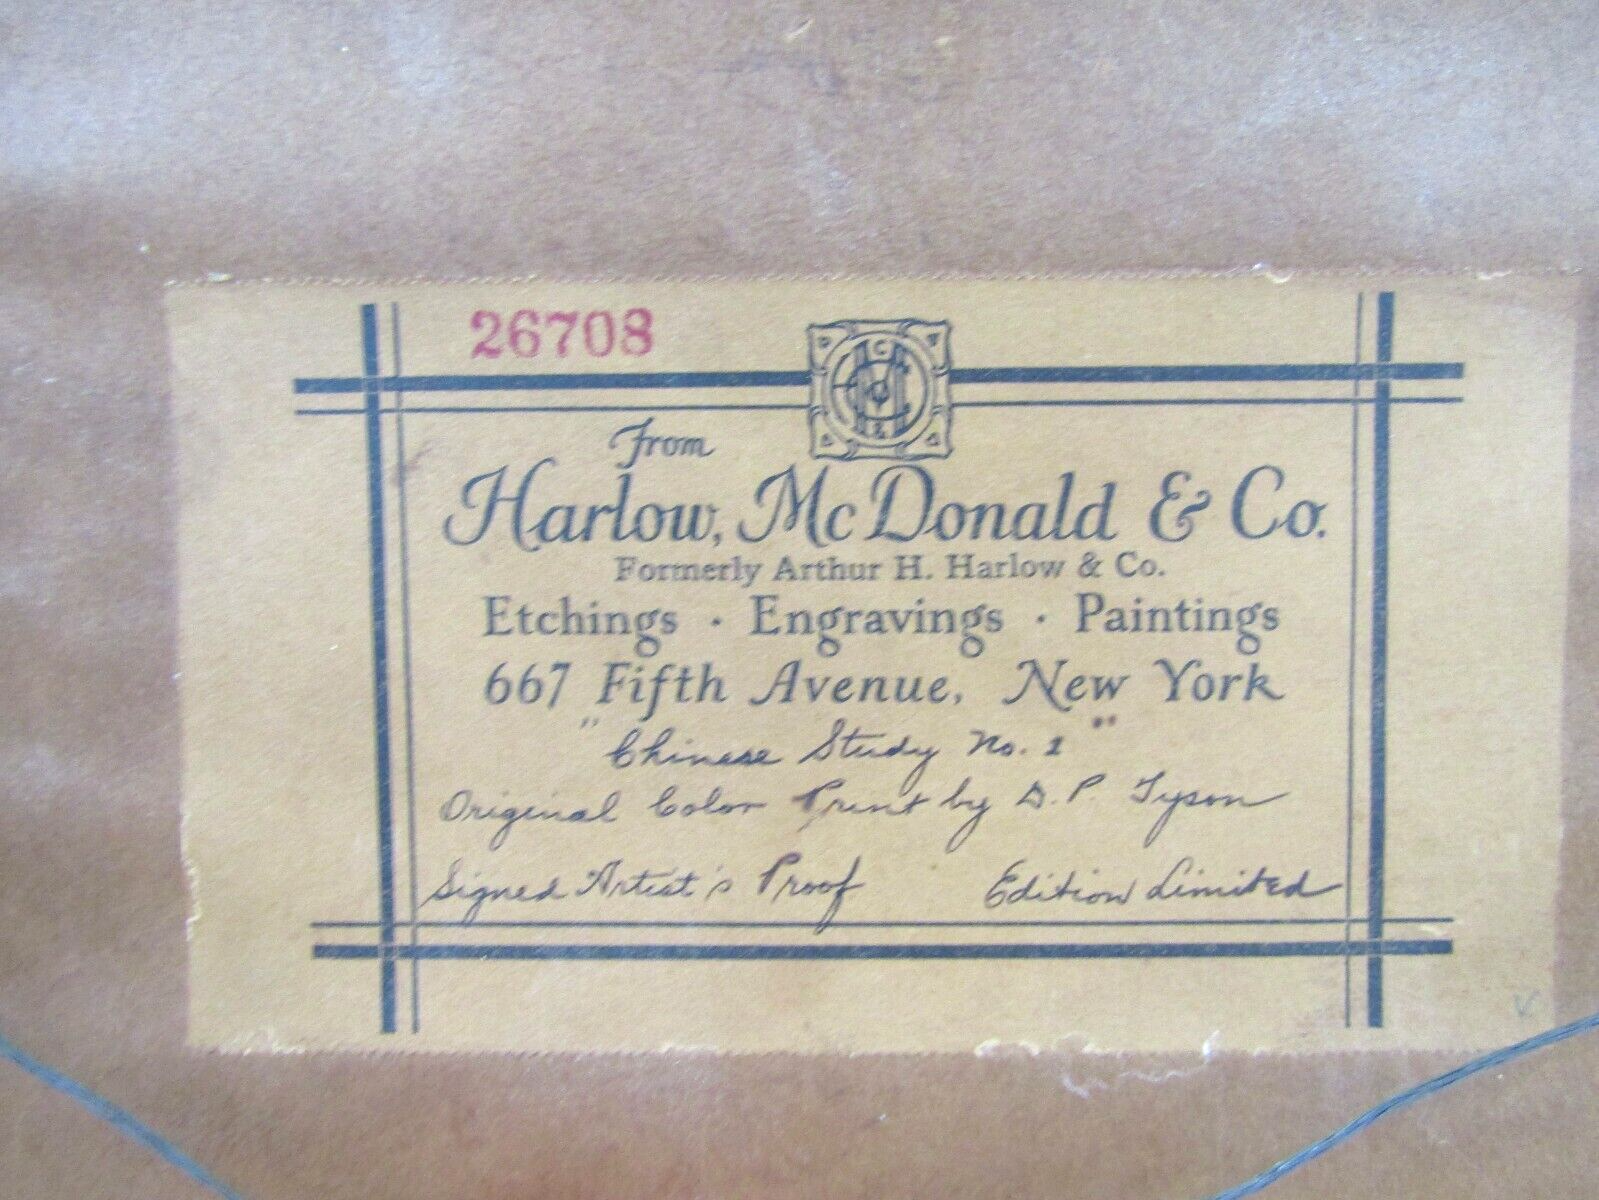 26708
From
Harlow, McDonald & Co.
Formerly Arthur H. Harlow & Co.
Etchings · Engravings · Paintings
667 Fifth Avenue, New York
"Chinese Study No. 1"
Original Color Print by D. P. Tyson
Signed Artist's Proof Edition Limited